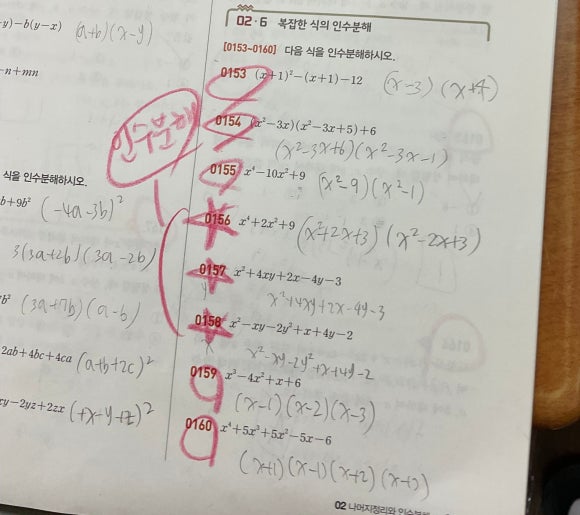 y)-b(y-x) (a+b)(x-y)
-n+mn
인수분해
식을 인수분해하시오.
b+9b² (-4a-3b)²
3(3a+2b)(3a-2b)
b² (3a+7b)(a-b)
2ab+4bc+4ca (a+b+2c)²
xy-2yz+2zx (+x-y+z)²
02·6 복잡한 식의 인수분해
[0153~0160] 다음 식을 인수분해하시오.
0153 (x+1)²-(x+1)-12 (x-3)(x+4)
0154 (x²-3x)(x²-3x+5)+6
(x²-3x+6)(x²-3x-1)
0155 x⁴-10x²+9 (x²-9)(x²-1)
0156 x⁴+2x²+9 (x²+2x+3)(x²-2x+3)
0157 x²+4xy+2x-4y-3
y
x²+4xy+2x-4y-3
0158 x²-xy-2y²+x+4y-2
x
x²-xy-2y²+x+4y-2
0159 x³-4x²+x+6
(x-1)(x-2)(x-3)
0160 x⁴+5x³+5x²-5x-6
(x+1)(x-1)(x+2)(x+3)
02 나머지정리와 인수분해